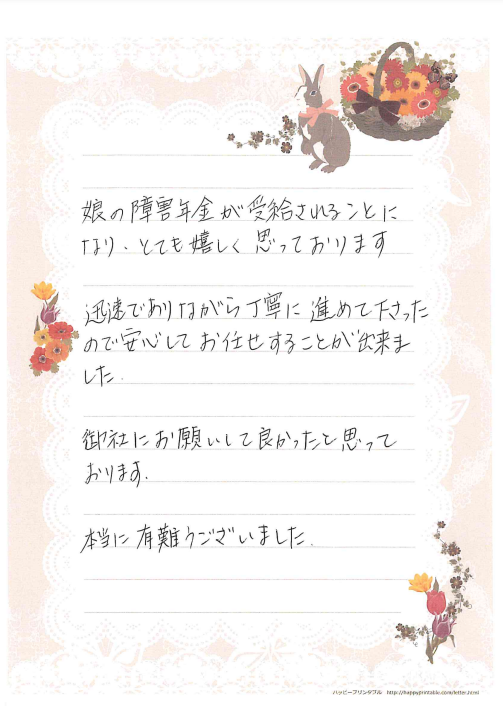 娘の障害年金が受給されることに
なり、とても嬉しく思っております
迅速でありながら丁寧に進めて下さった
ので安心してお任せすることが出来ま
した.
御社にお願いして良かったと思って
おります.
本当に有難うございました.
ハッピープリンタブル http://happyprintable.com/letter.html